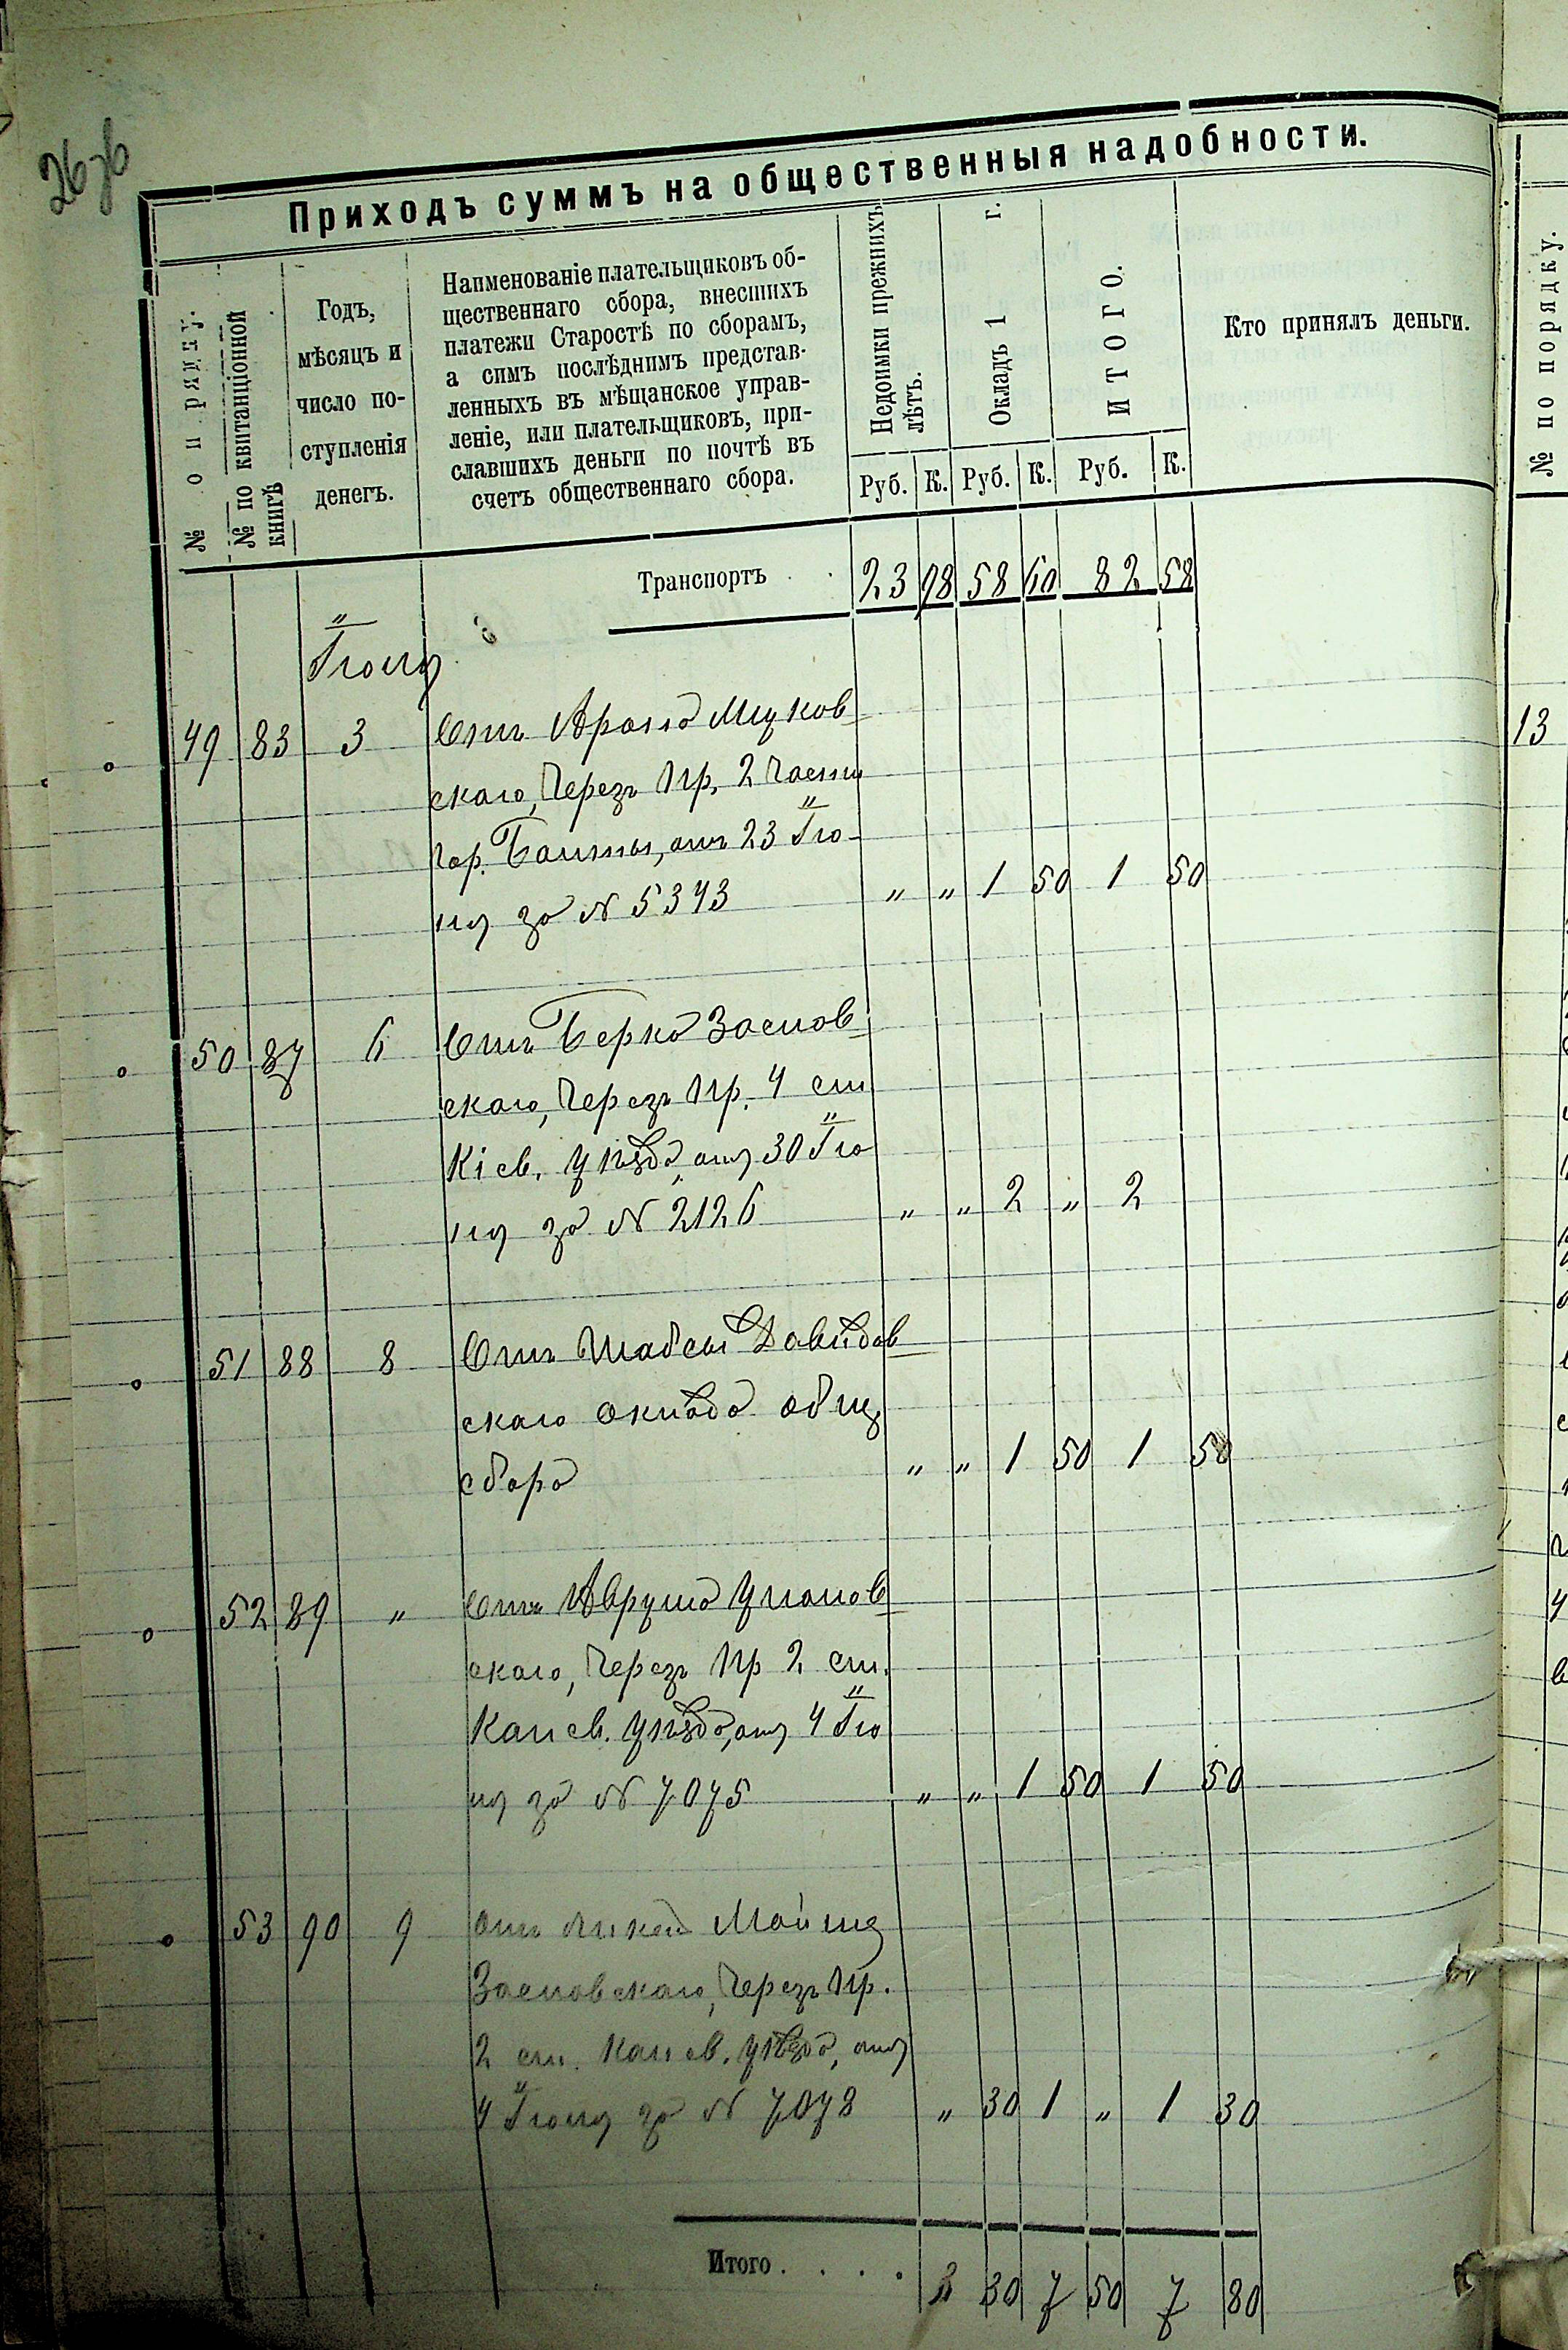 26 об
Приходъ суммъ на общественныя надобности.
№ по порядку.
№ по квитанціонной книгѣ
Годъ,
мѣсяцъ и
число по-
ступленія
денегъ.
Наименованіе плательщиковъ об-
щественнаго сбора, внесшихъ
платежи Старостѣ по сборамъ,
а симъ послѣднимъ представ-
ленныхъ въ мѣщанское управ-
леніе, или плательщиковъ, при-
славшихъ деньги по почтѣ въ
счетъ общественнаго сбора.
Недоимки прежнихъ лѣтъ.
Окладъ 1 г.
ИТОГО.
Кто принялъ деньги.
Руб. К. Руб. К. Руб. К.
Транспортъ . . 23 98 58 60 82 58
Іюля
49 83 3 Отъ Арона Муков
скаго, Через Пр. 2 части
гор. Балты, отъ 23 Ію-
ня за № 5343 " " 1 50 1 50
50 87 6 Отъ Берка Заслов
скаго, Через Пр. 4 ст
Кіев. уѣзда, отъ 30 Ію
ня за № 2126 " " 2 " 2
51 88 8 Отъ Шабсы Давидов
скаго оклада общ.
сбора " " 1 50 1 50
52 89 " Отъ Аврума
скаго, Через Пр 2 ст.
Канев. уѣзда, отъ 4 Ію
ля за № 7075 " " 1 50 1 50
53 90 9 отъ Мойше
Заславскаго, Через Пр.
2 ст. Канев. уѣзда, отъ
4 Іюля за № 7078 " 30 1 " 1 30
Итого . . . . " 30 7 50 7 80
№ по порядку.
13